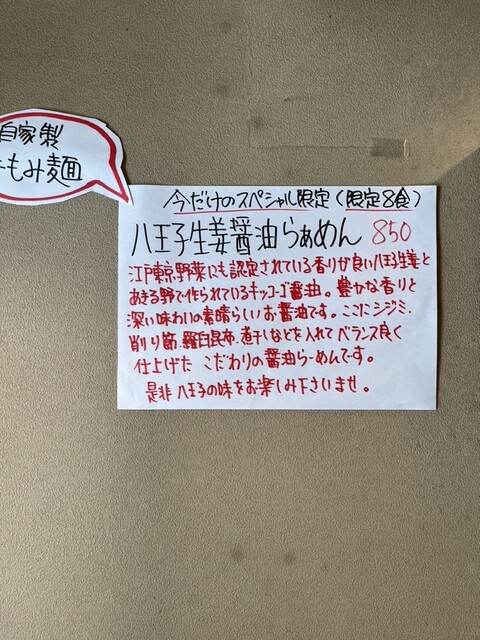 自家製
手もみ麺
今だけのスペシャル限定(限定8食)
八王子生姜醤油らぁめん 850
江戸東京野菜にも認定されている香りが良い八王子生姜と
あきる野で作られているキッコーゴ醤油。豊かな香りと
深い味わいの素晴らしいお醤油です。ここにシジミ、
削り節、羅臼昆布、煮干しなどを入れてバランス良く
仕上げた こだわりの醤油らーめんです。
是非 八王子の味をお楽しみ下さいませ。